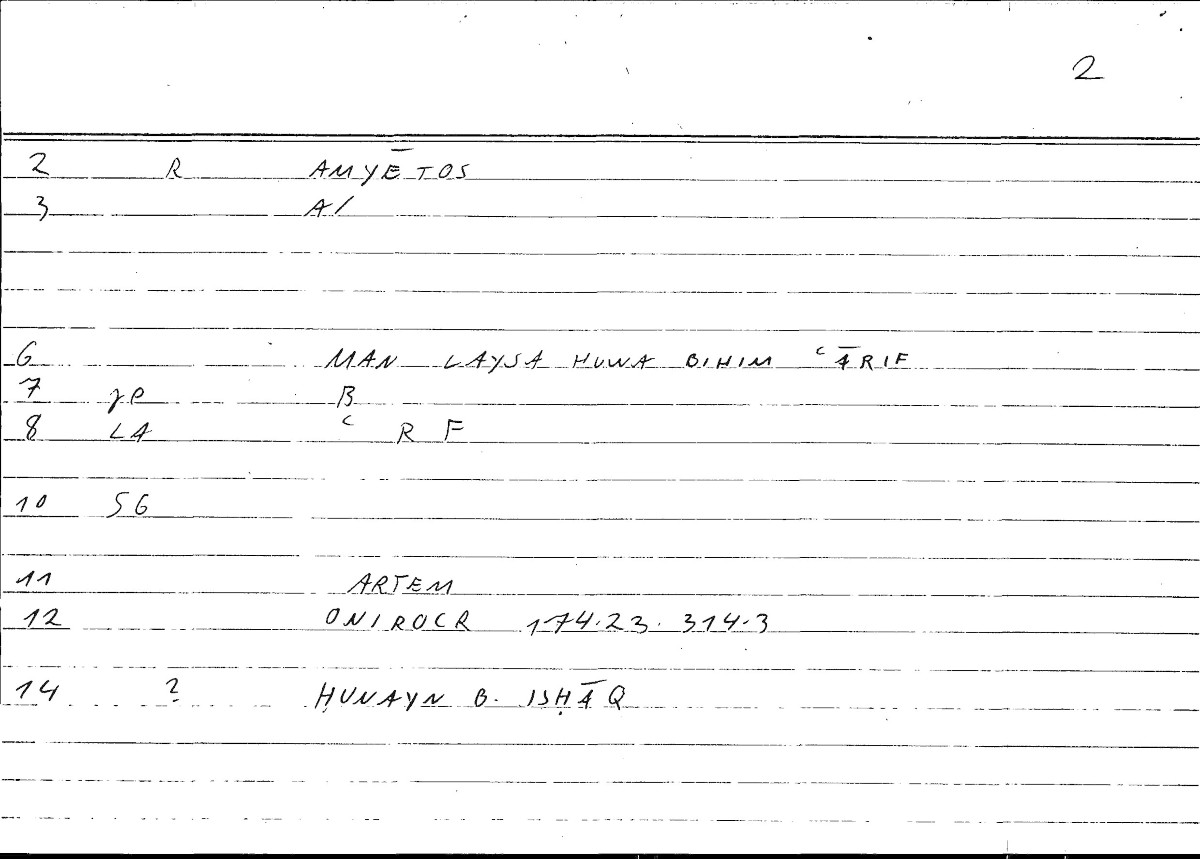 2
2 R AMYĒTOS
3 A/
6 MAN LAYSA HUWA BIHIM ʿĀRIF
7 γρ B
8 LA ʿ R F
10 SG
11 ARTEM
12 ONIROCR 174.23. 314.3
14 ? ḤUNAYN B. ISḤĀQ